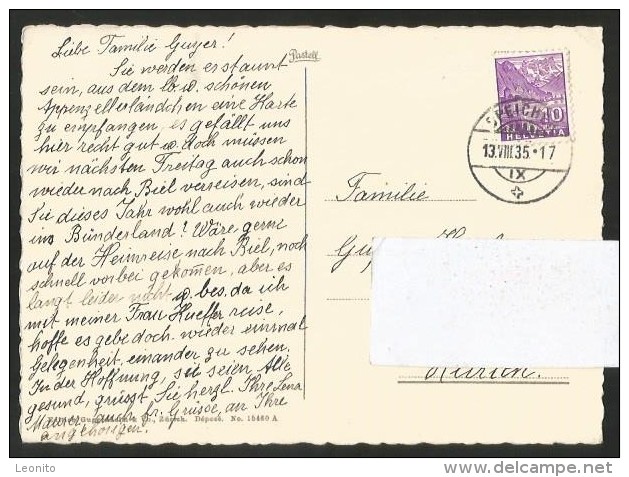 Liebe Familie Guyer!
Sie werden erstaunt
sein, aus dem lb. u. schönen
Appenzellerländchen eine Karte
zu empfangen, es gefällt uns
hier recht gut u. doch müssen
wir nächsten Freitag auch schon
wieder nach Biel verreisen, sind
Sie dieses Jahr wohl auch wieder
im Bünderland? Wäre gerne
auf der Heimreise nach Biel, noch
schnell vorbei gekom̅en, aber es
langt leider nicht u. bes. da ich
mit meiner Frau Hueffer reise,
hoffe es gebe doch wieder einmal
Gelegenheit, einander zu sehen.
In der Hoffnung, sie seien Alle
gesund, grüsst Sie herzl. Ihre Lena
Maurer, auch frdl. Grüsse, an Ihre
angehörigen.
Zürich. Déposé. No. 15460 A
Pastell
10
HELVETIA
SPEICH
13.VIII.35·17
IX
Familie
Zürich.
Leonito
www.delcampe.net